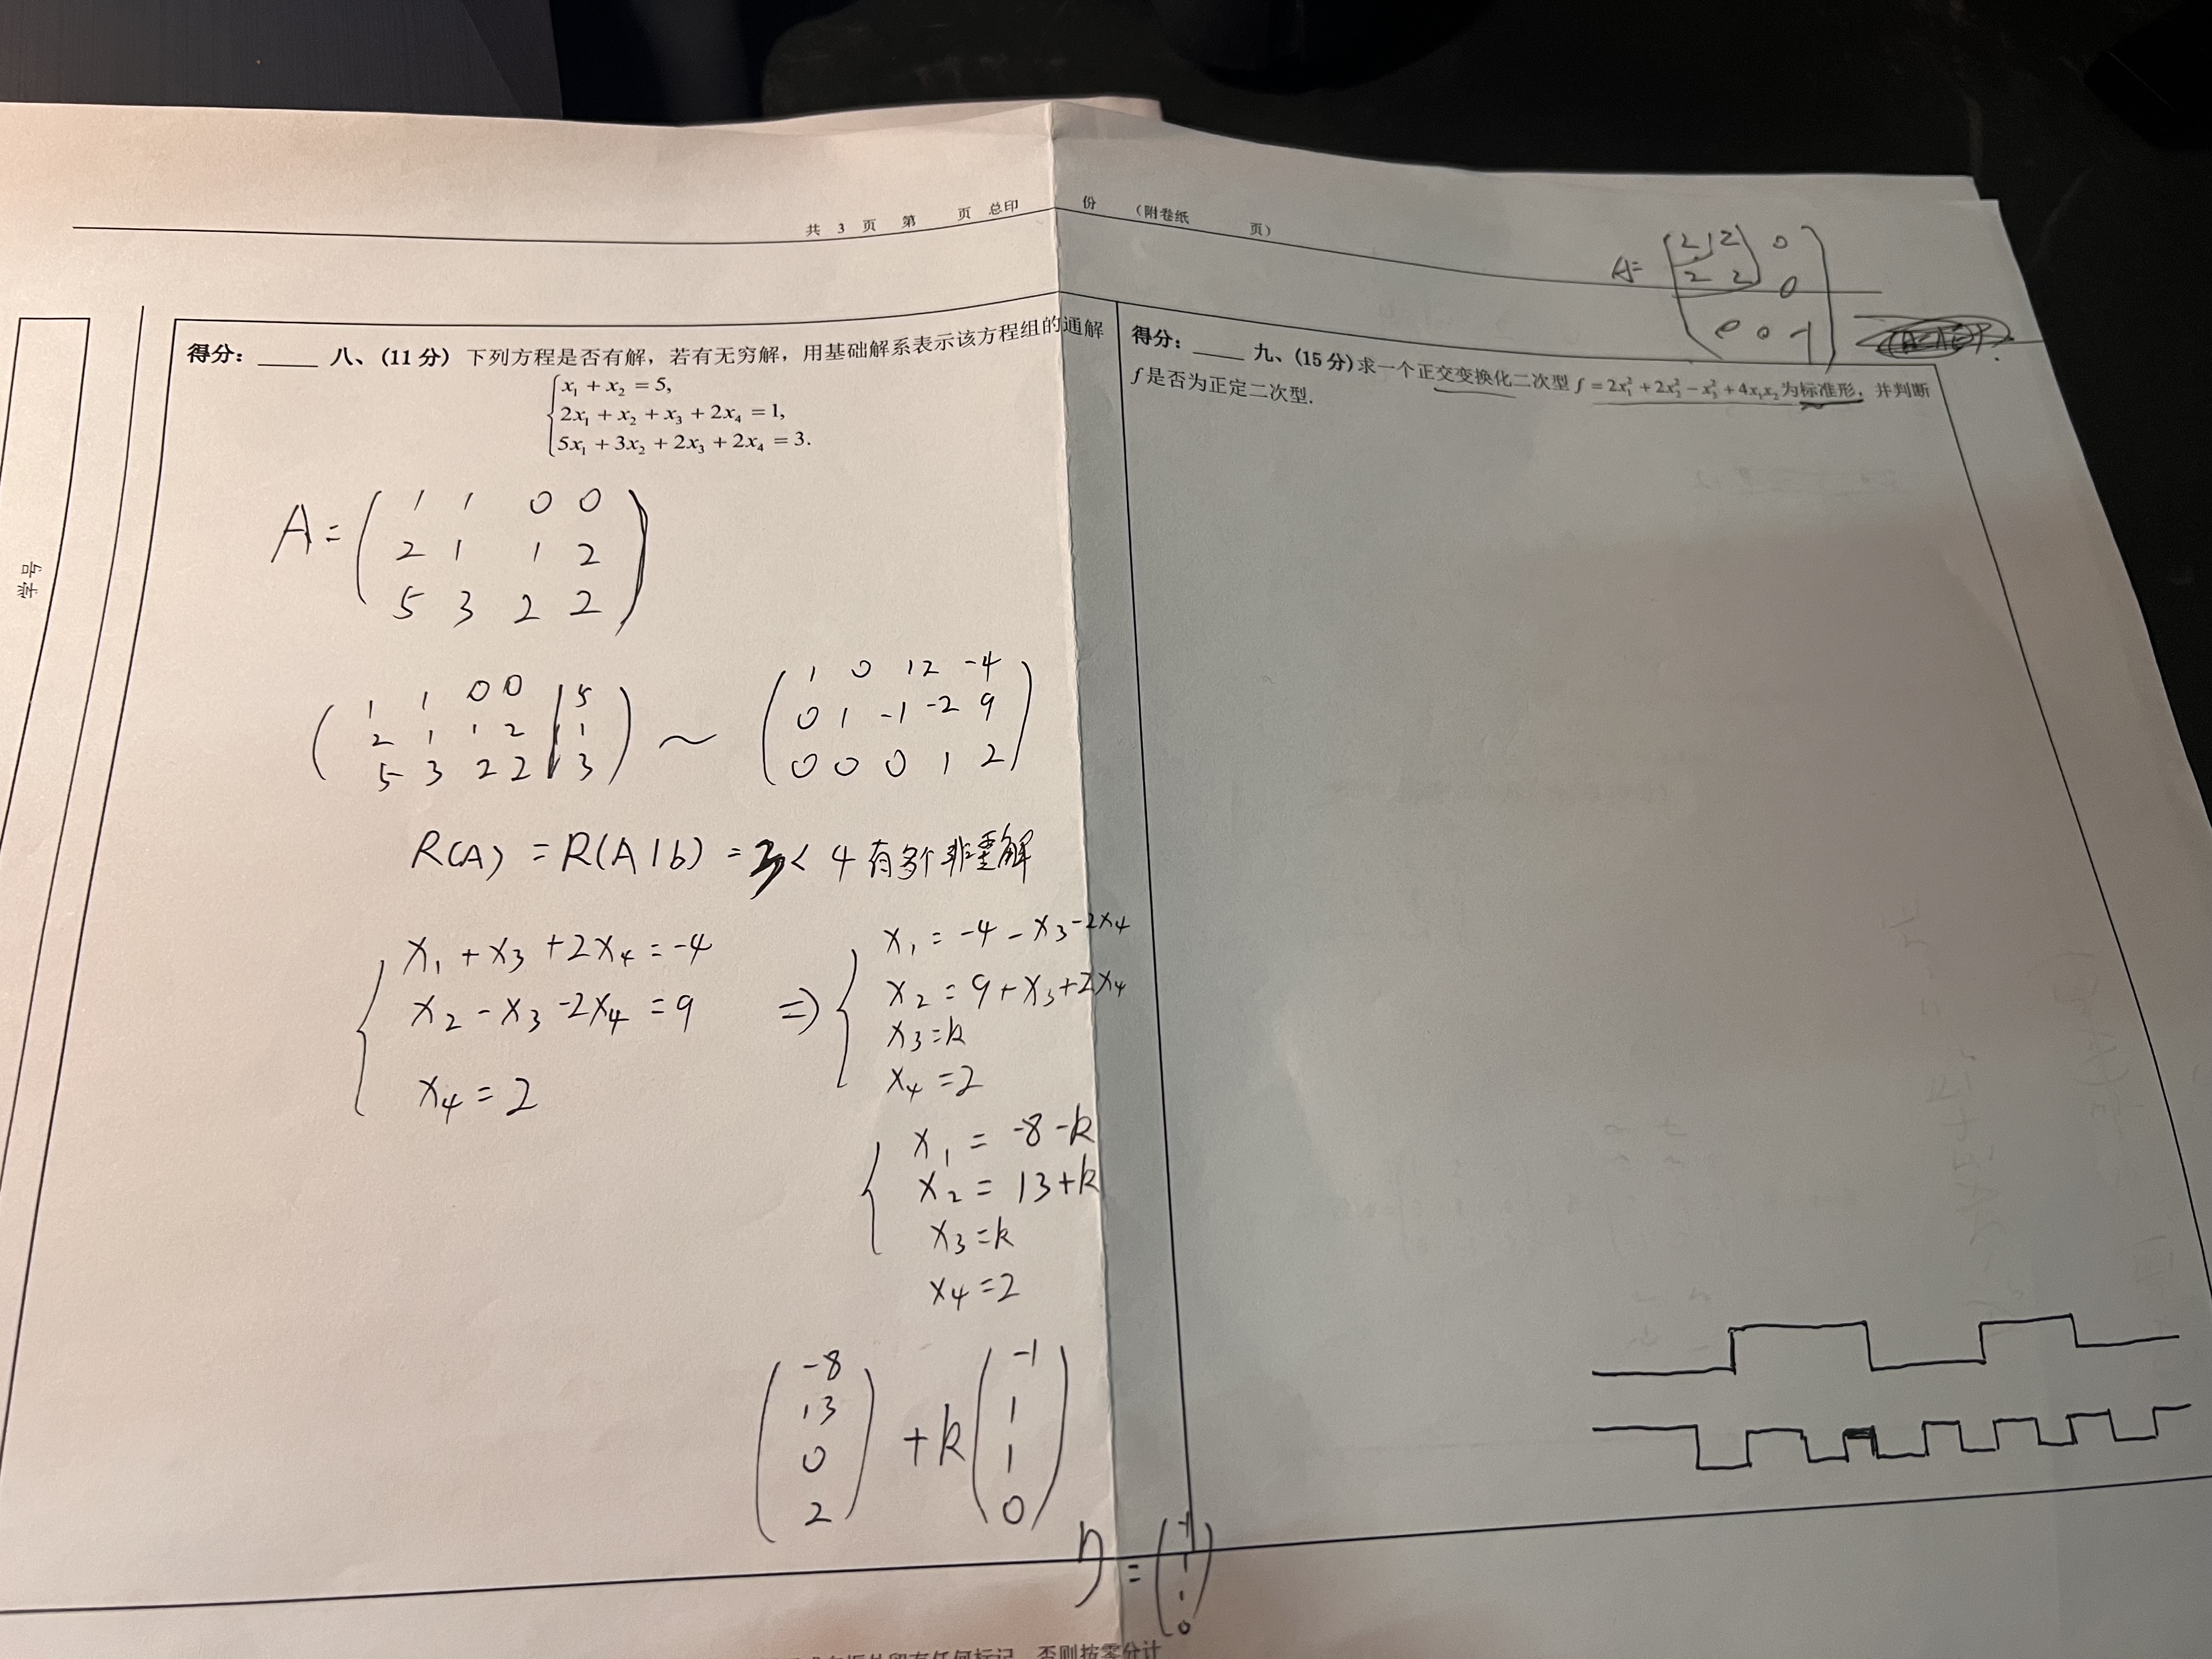 共 3 页 第 页 总印 份 （附卷纸 页）
A= ( 2 2 0
2 2 0
0 0 -1 )
学号
得分：_____ 八、(11 分) 下列方程是否有解，若有无穷解，用基础解系表示该方程组的通解
x₁ + x₂ = 5,
2x₁ + x₂ + x₃ + 2x₄ = 1,
5x₁ + 3x₂ + 2x₃ + 2x₄ = 3.
A= ( 1 1 0 0
2 1 1 2
5 3 2 2 )
( 1 1 0 0 | 5
2 1 1 2 | 1
5 3 2 2 | 3 ) ~ ( 1 0 1 2 -4
0 1 -1 -2 9
0 0 0 1 2 )
R(A) = R(A|b) = 3 < 4 有多个非零解
x₁ + x₃ + 2x₄ = -4
x₂ - x₃ - 2x₄ = 9
x₄ = 2
=> x₁ = -4 - x₃ - 2x₄
x₂ = 9 + x₃ + 2x₄
x₃ = k
x₄ = 2
x₁ = -8 - k
x₂ = 13 + k
x₃ = k
x₄ = 2
( -8
13
0
2 ) + k ( -1
1
1
0 )
η = ( -1
1
1
0 )
得分：_____ 九、(15 分) 求一个正交变换化二次型 f = 2x₁² + 2x₂² − x₃² + 4x₁x₂ 为标准形，并判断
f 是否为正定二次型.
否则按零分计